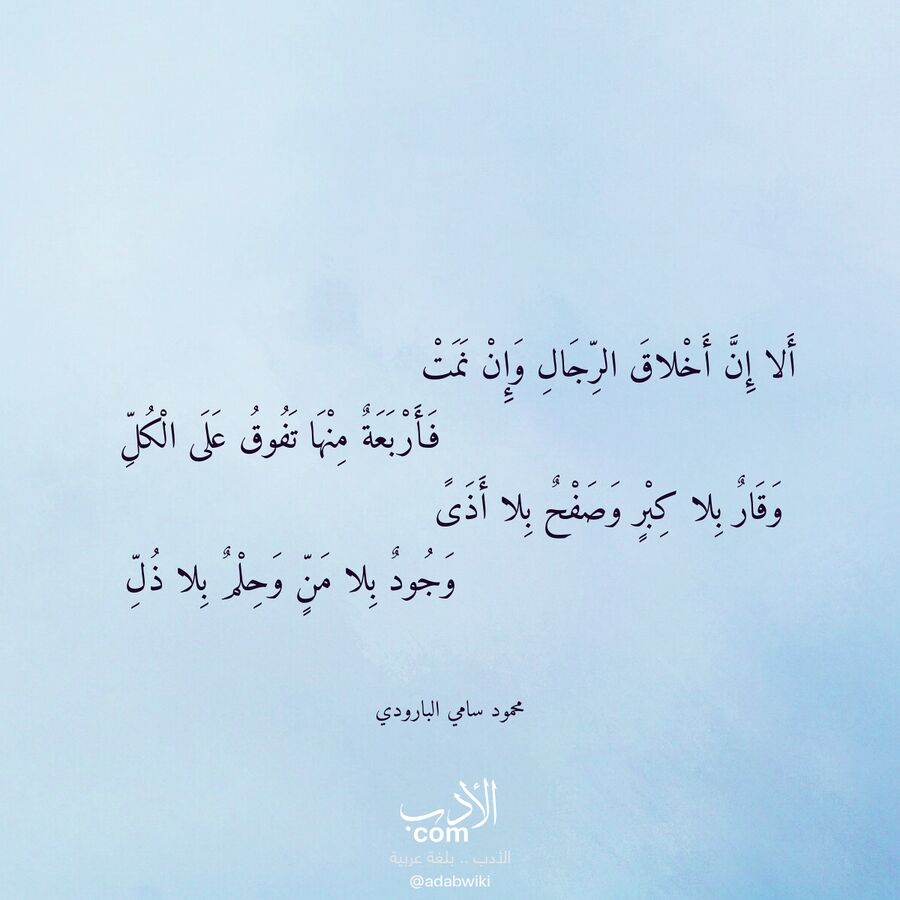 أَلا إِنَّ أَخْلاقَ الرِّجَالِ وَإِنْ نَمَتْ
فَأَرْبَعَةٌ مِنْهَا تَفُوقُ عَلَى الْكُلِّ
وَقَارٌ بِلا كِبْرٍ وَصَفْحٌ بِلا أَذَىً
وَجُودٌ بِلا مَنٍّ وَحِلْمٌ بِلا ذُلِّ
محمود سامي البارودي
الأدب
com
الأدب .. بلغة عربية
@adabwiki